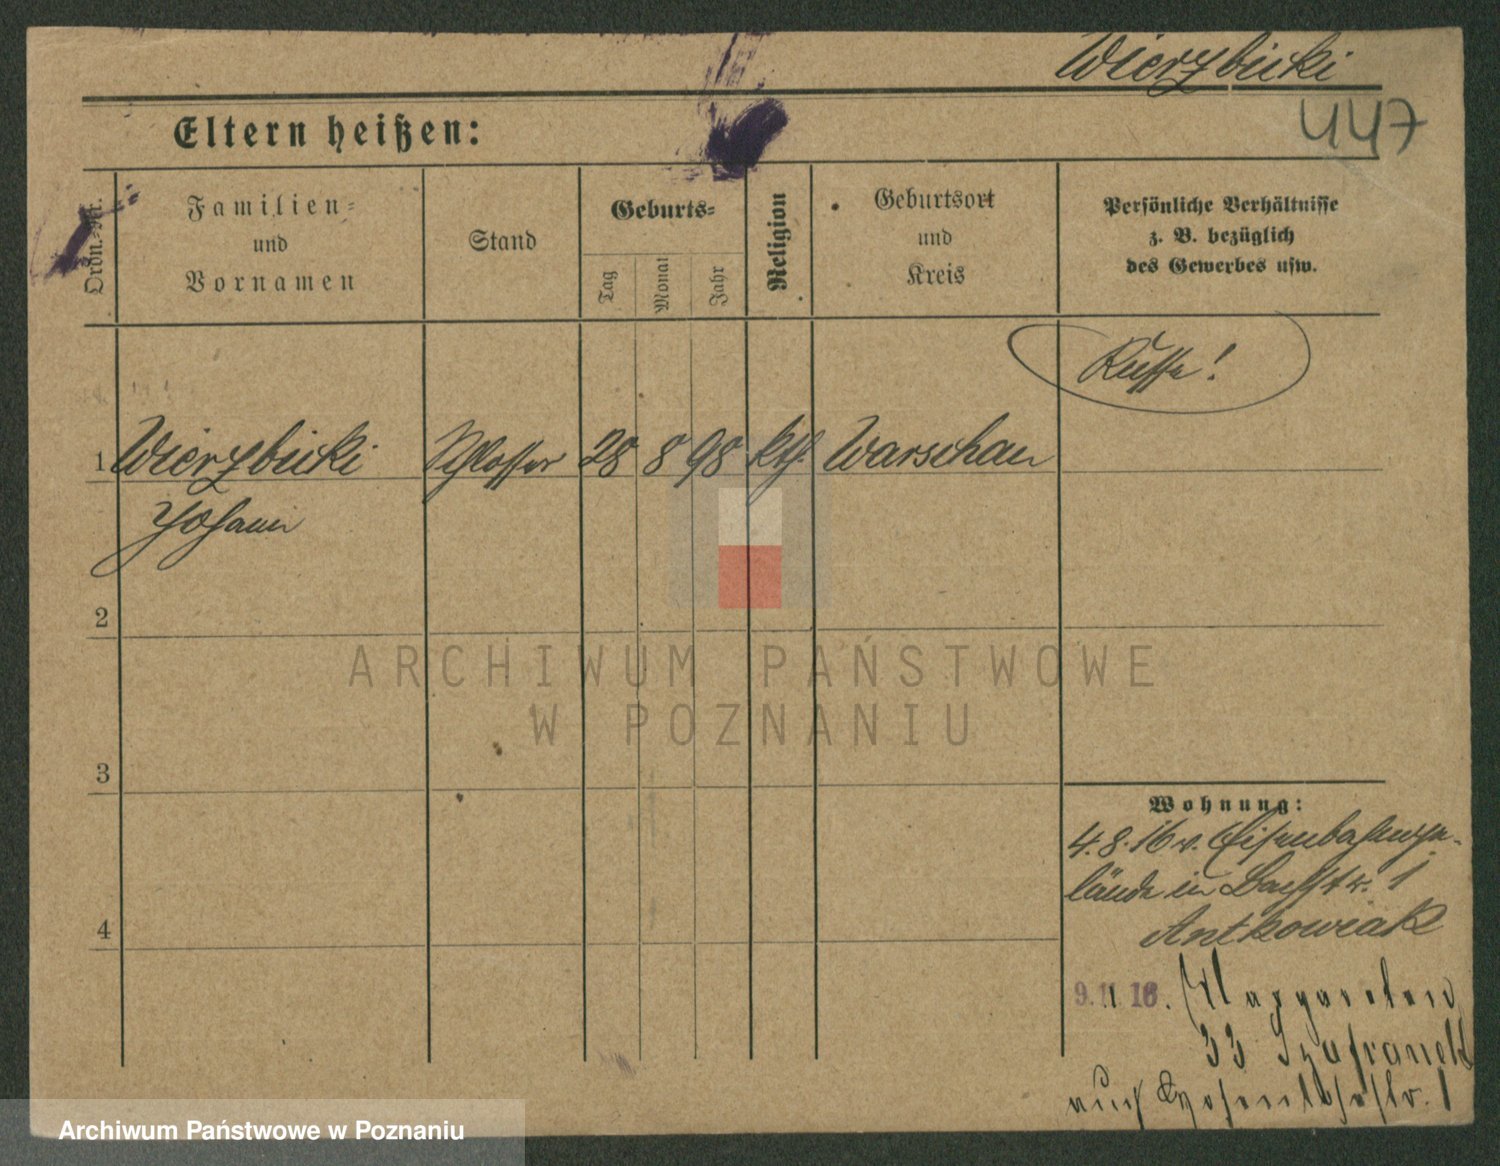 Wierzbicki
447
Eltern heißen:
Ordn.-Nr.
Familien-
und
Vornamen
Stand
Geburts-
Tag
Monat
Jahr
Religion
Geburtsort
und
Kreis
Persönliche Verhältnisse
z. B. bezüglich
des Gewerbes usw.
Russe!
1 Wierzbicki Schlosser 28 8 98 kth. Warschau
Johann
2
ARCHIWUM PAŃSTWOWE
W POZNANIU
3
Wohnung:
4.8.16 v. Eisenbahnge-
lände in Bachstr. 1
4
Antkowiak
9.11 16. Margareten
33 Szafranek
auch
Archiwum Państwowe w Poznaniu